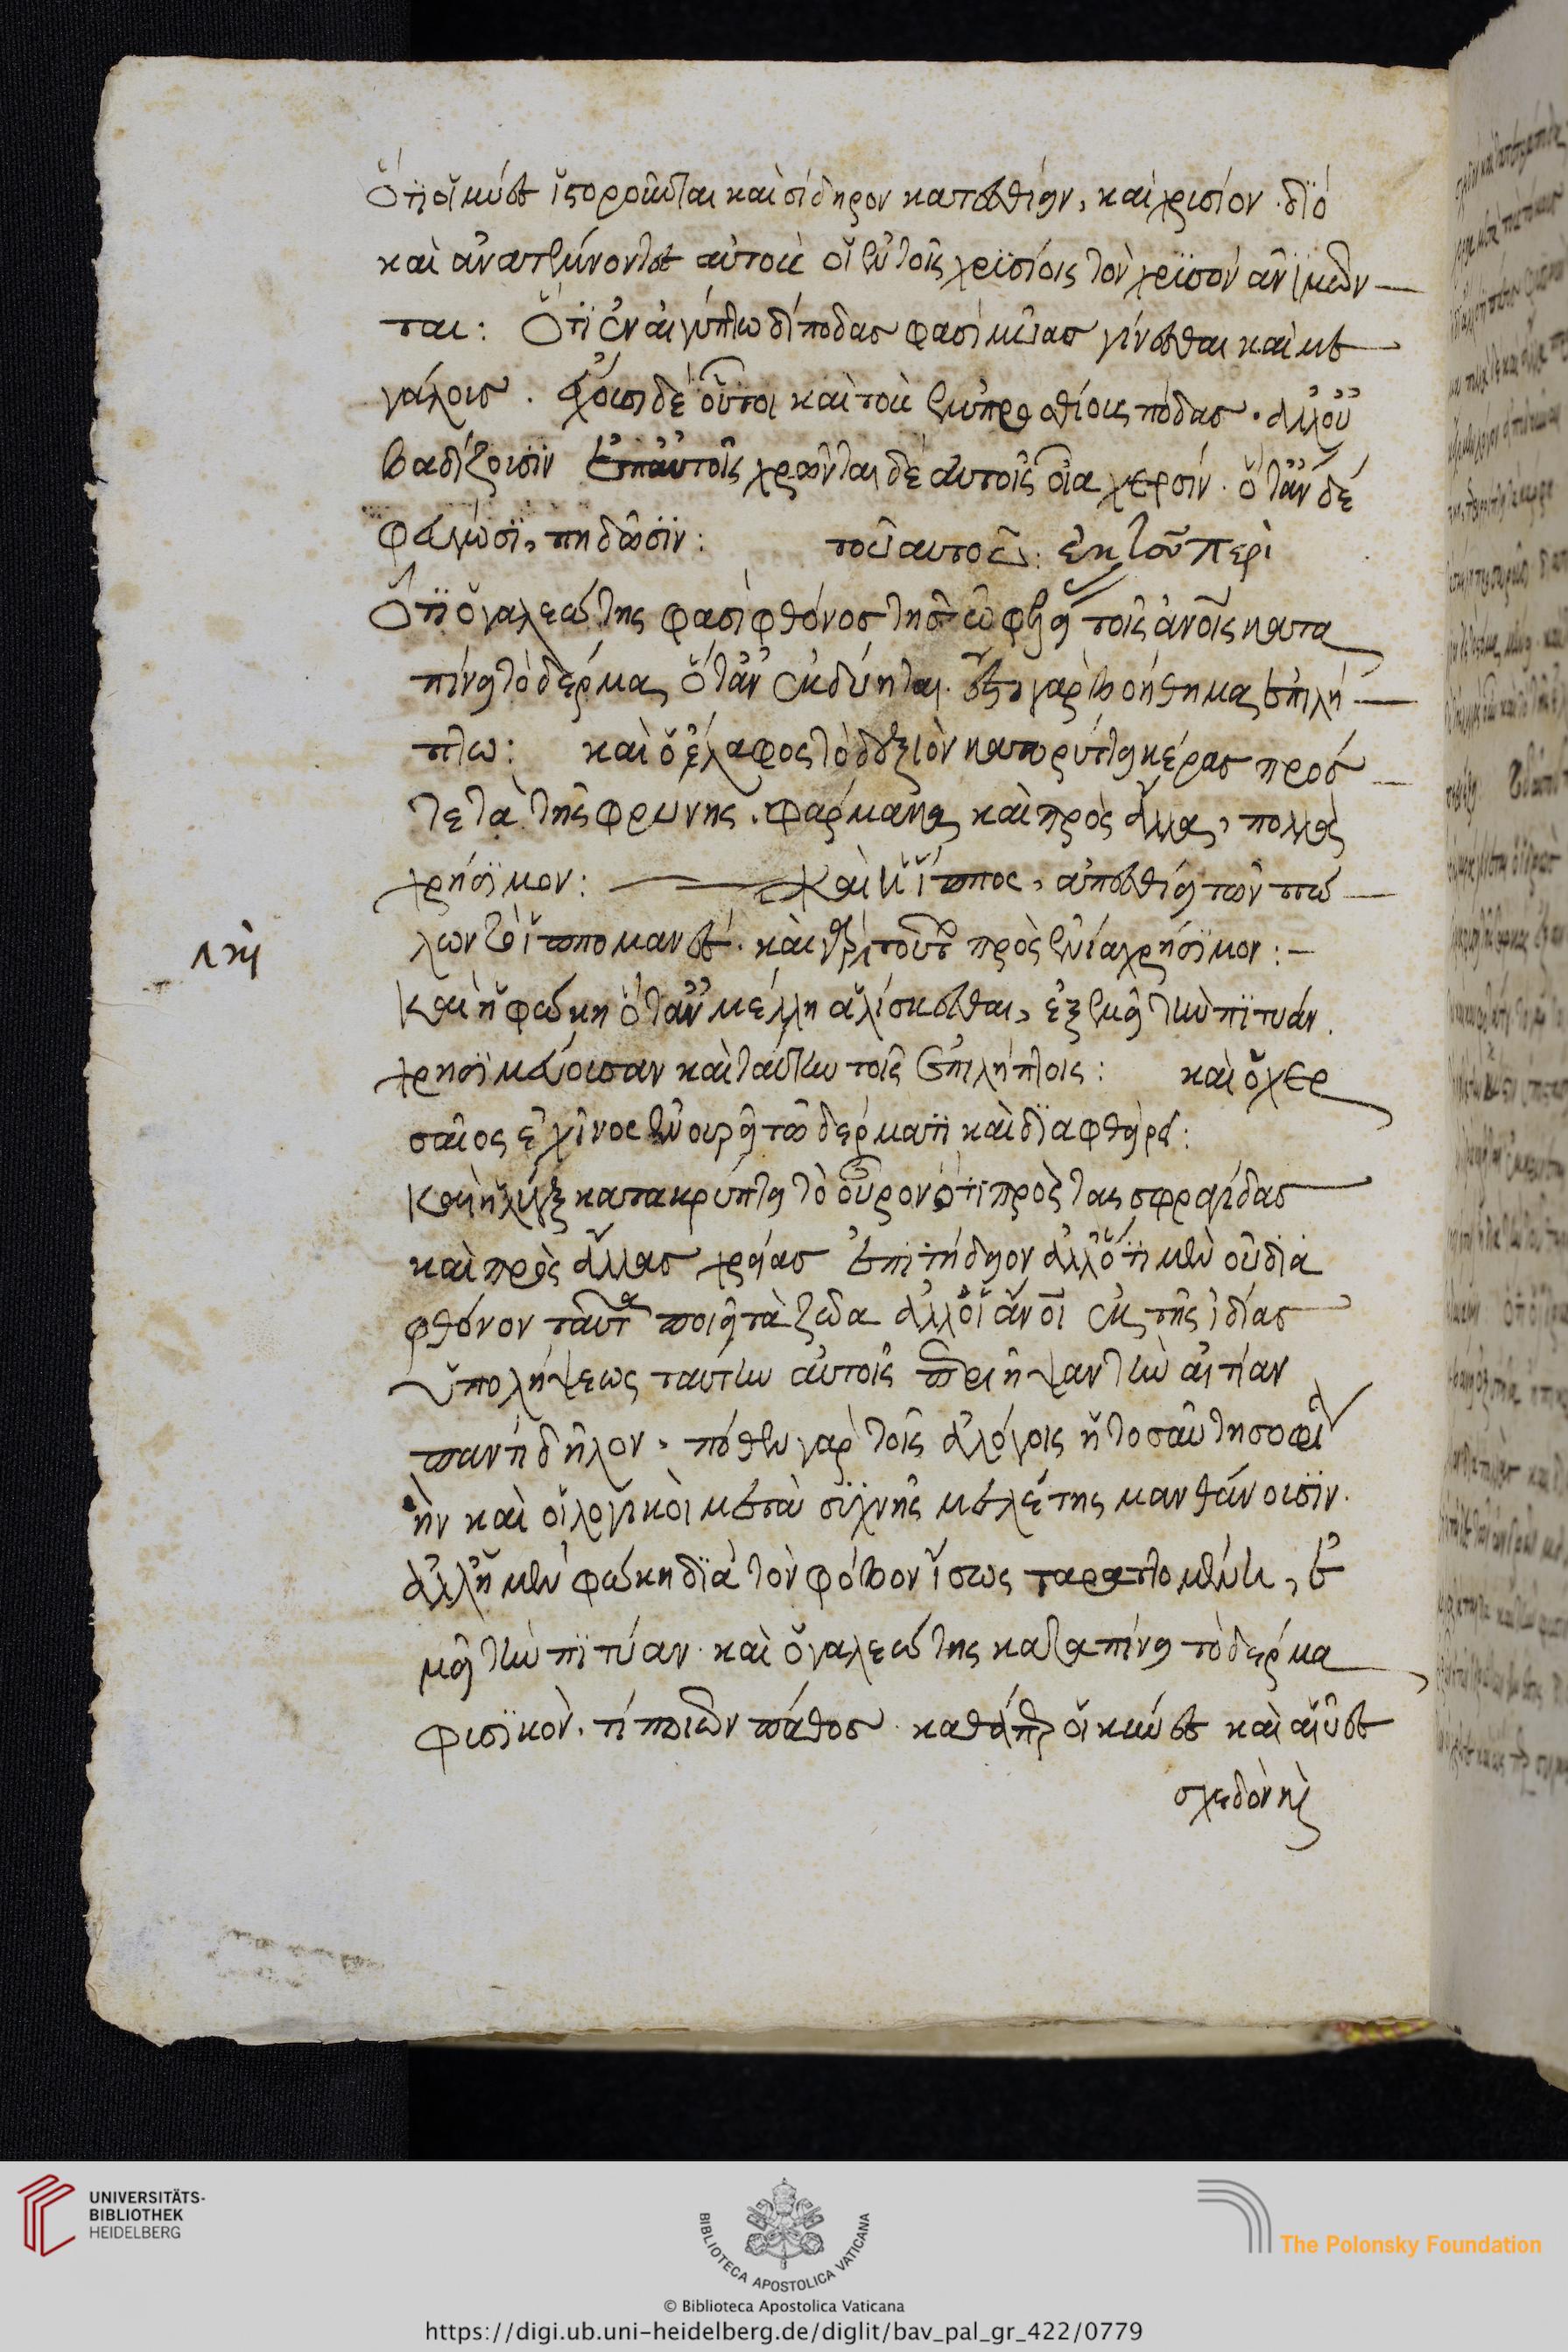 Ὅτι οἱ μύες ἱστοροῦνται καὶ σίδηρον κατεσθίειν, καὶ χρυσίον. διό
καὶ ἀνατέμνοντες αὐτοὺς οἱ ἐν τοῖς χρυσίοις τὸν χρυσὸν ἀνιμῶν
ται: Ὅτι ἐν αἰγύπτω δίποδας φασὶ μύας γίνεσθαι καὶ με
γάλους. ἔχουσι δὲ οὗτοι καὶ τοὺς ἐμπροσθίους πόδας. ἀλλ' οὐ
βαδίζουσιν ἐπ' αὐτοῖς χρῶνται δὲ αὐτοῖς οἷα χερσίν. ὅταν δέ
φεύγωσι, πηδῶσιν: τοῦ αὐτοῦ: ἐκ τοῦ περὶ
Ὅτι ὁ γαλεώτης φασὶ φθόνος τῆς ὠφελείας τοῖς ἀνοις κατα
πίνει τὸ δέρμα, ὅταν ἐκδύηται. ἔστι γὰρ βοήθημα ἐπιλή
πτω: καὶ ὁ ἔλαφος τὸ δεξιὸν κατορύττει κέρας πρός
τε τὰ τῆς φρύνης. φάρμακα καὶ πρὸς ἄλλα, πολλὰ
χρήσιμον: Καὶ ἡ ἵππος, ἀπεσθίει τῶν πώ
λων τὸ ἱππομανές. καὶ γὰρ τοῦτο πρὸς ἔνια χρήσιμον:
Καὶ ἡ φώκη ὅταν μέλλη ἁλίσκεσθαι, ἐξεμεῖ τὴν πιτυάν.
χρησιμεύουσαν καὶ ταύτην τοῖς ἐπιλήπτοις: καὶ ὁ χερ
σαῖος ἐχῖνος ἐνουρεῖ τῶ δέρματι καὶ διαφθείρει:
Καὶ ἡ λύγξ κατακρύπτει τὸ οὖρον ὅτι πρὸς τας σφραγίδας
καὶ πρὸς ἄλλας χρείας ἐπιτήδειον ἀλλ' ὅτι μὲν οὐ διὰ
φθόνον ταῦτα ποιεῖ τὰ ζῶα ἀλλ' οἱ ἄνοι ἐκ τῆς ἰδίας
ὑπολήψεως ταύτην αὐτοῖς περιῆψαν τὴν αἰτίαν
παντὶ δῆλον. πόθεν γὰρ τοῖς ἀλόγοις ἡ τοσαύτη σοφία
ἣν καὶ οἱ λογικοὶ μετὰ συχνῆς μελέτης μανθάνουσιν.
ἀλλ' ἡ μὲν φώκη διὰ τὸν φόβον ἴσως ταραττομένη, ἐ
μεῖ τὴν πιτύαν. καὶ ὁ γαλεώτης καταπίνει τὸ δέρμα
φυσικόν. τί ποιῶν πάθος. καθάπερ οἱ κύνες καὶ αἱ ὕες
σχεδὸν καὶ
UNIVERSITÄTS-
BIBLIOTHEK
HEIDELBERG
BIBLIOTECA APOSTOLICA VATICANA
The Polonsky Foundation
© Biblioteca Apostolica Vaticana
https://digi.ub.uni-heidelberg.de/diglit/bav_pal_gr_422/0779